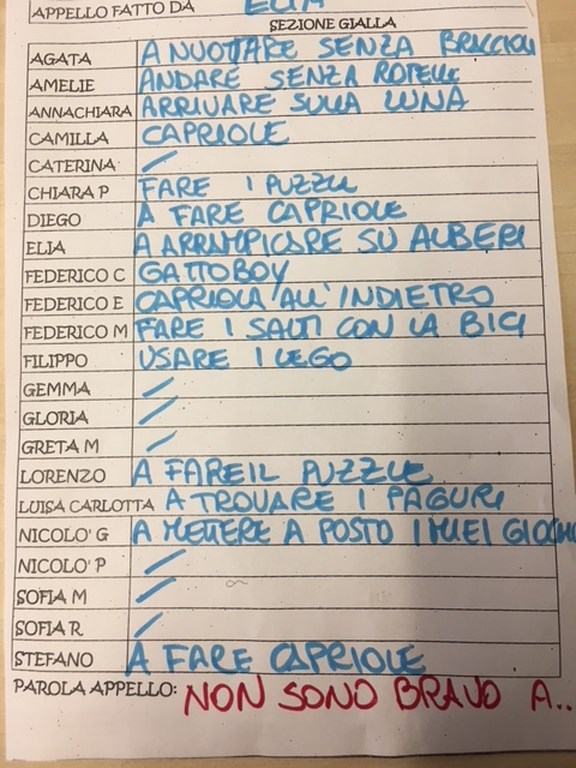 APPELLO FATTO DA ELIA
SEZIONE GIALLA
AGATA A NUOTARE SENZA BRACCIOLI
AMELIE ANDARE SENZA ROTELLE
ANNACHIARA ARRIVARE SULLA LUNA
CAMILLA CAPRIOLE
CATERINA /
CHIARA P FARE I PUZZLE
DIEGO A FARE CAPRIOLE
ELIA A ARRAMPICARE SU ALBERI
FEDERICO C GATTOBOY
FEDERICO E CAPRIOLA ALL'INDIETRO
FEDERICO M FARE I SALTI CON LA BICI
FILIPPO USARE I LEGO
GEMMA /
GLORIA /
GRETA M /
LORENZO A FARE IL PUZZLE
LUISA CARLOTTA A TROVARE I PAGURI
NICOLO' G A METTERE A POSTO I MIEI GIOCHI
NICOLO' P /
SOFIA M /
SOFIA R /
STEFANO A FARE CAPRIOLE
PAROLA APPELLO: NON SONO BRAVO A..